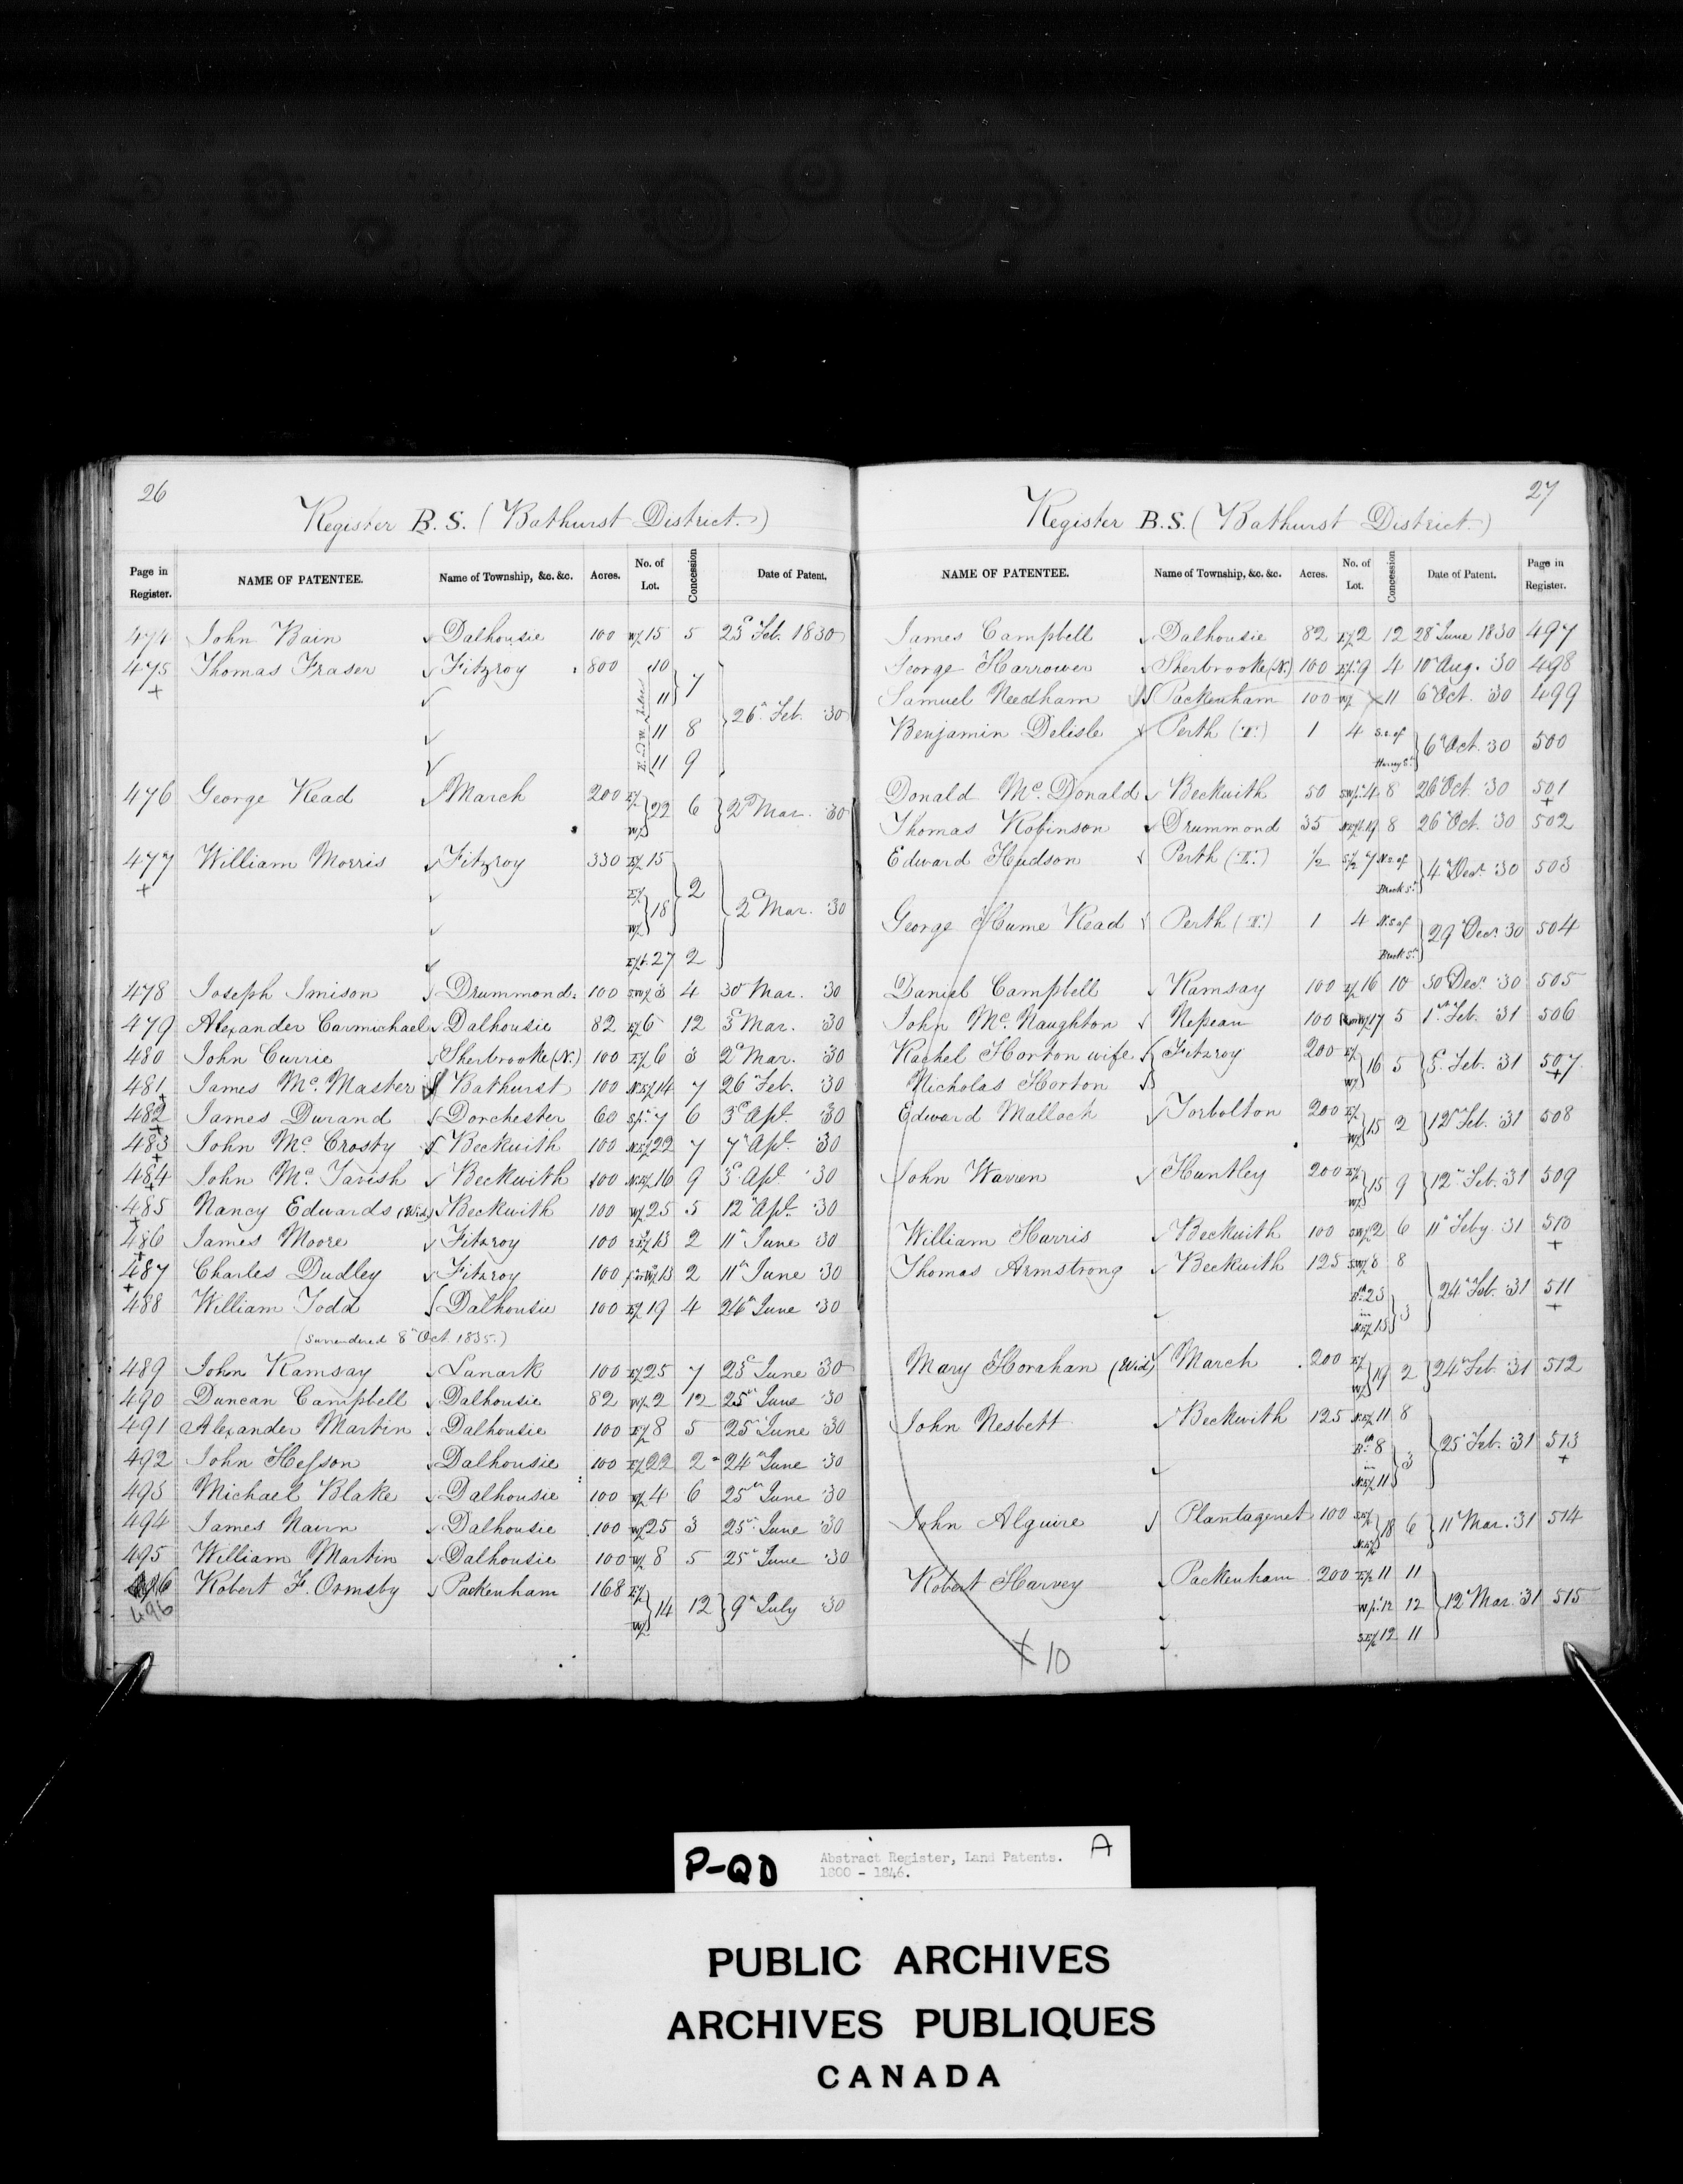 26
Register B.S. (Bathurst District.)
Page in Register. NAME OF PATENTEE. Name of Township, &c. &c. Acres. No. of Lot. Concession Date of Patent.
474 John Bain Dalhousie 100 W½ 15 5 23d Feb. 1830
475 Thomas Fraser Fitzroy 800 10 } 7
+ 11
11 8 } 26th Feb. 30
11 9
476 George Read March 200 E½ W½ } 22 6 } 2nd Mar. 30
477 William Morris Fitzroy 330 E½ 15
+ E½ W½ } 18 } 2 } 2d Mar. 30
27 2
478 Joseph Imison Drummond 100 SW½ 3 4 30th Mar. 30
479 Alexander Carmichael Dalhousie 82 E½ 6 12 3d Mar. 30
480 John Currie Sherbrooke (N.) 100 E½ 6 3 2d Mar. 30
481 James Mc. Master Bathurst 100 NE½ 14 7 26th Feb. 30
482 James Durand Dorchester 60 7 6 3d Apl. 30
483 John Mc. Crosty Beckwith 100 NE½ 22 7 7th Apl. 30
484 John Mc. Tavish Beckwith 100 NE½ 16 9 3d Apl. 30
485 Nancy Edwards (Wid.) Beckwith 100 W½ 25 5 12th Apl. 30
486 James Moore Fitzroy 100 13 2 11th June 30
487 Charles Dudley Fitzroy 100 13 2 11th June 30
488 William Todd Dalhousie 100 E½ 19 4 24th June 30
(Surrendered 8th Oct. 1835.)
489 John Ramsay Lanark 100 E½ 25 7 23d June 30
490 Duncan Campbell Dalhousie 82 W½ 2 12 25th June 30
491 Alexander Martin Dalhousie 100 E½ 8 5 25th June 30
492 John Hesson Dalhousie 100 E½ 22 2 24th June 30
493 Michael Blake Dalhousie 100 W½ 4 6 25th June 30
494 James Nairn Dalhousie 100 W½ 25 3 25th June 30
495 William Martin Dalhousie 100 W½ 8 5 25th June 30
496 Robert F. Ormsby Packenham 168 E½ W½ } 14 12 } 9th July 30
496
27
Register B.S. (Bathurst District.)
NAME OF PATENTEE. Name of Township, &c. &c. Acres. No. of Lot. Concession Date of Patent. Page in Register.
James Campbell Dalhousie 82 E½ 2 12 28th June 1830 497
George Harrower Sherbrooke (N.) 100 E½ 9 4 10th Aug. 30 498
Samuel Needham Packenham 100 W½ 11 6th Oct. 30 499
Benjamin Delisle Perth (T.) 1 4 S.s. of Harvey St. } 6th Oct. 30 500
Donald Mc. Donald Beckwith 50 4 8 26th Oct. 30 501
+
Thomas Robinson Drummond 35 19 8 26th Oct. 30 502
Edward Hudson Perth (T.) ½ S½ 7 N.s. of Brock St. } 4th Decr. 30 503
George Hume Read Perth (T.) 1 4 N.s. of Brock St. } 29th Decr. 30 504
Daniel Campbell Ramsay 100 E½ 16 10 30th Decr. 30 505
John Mc. Naughton Nepean 100 17 5 1st Feb. 31 506
Rachel Horton wife Fitzroy 200 E½ W½ } 16 5 } 5th Feb. 31 507
Nicholas Horton +
Edward Malloch Torbolton 200 E½ W½ } 15 2 } 12th Feb. 31 508
John Warren Huntley 200 E½ W½ } 15 9 } 12th Feb. 31 509
William Harris Beckwith 100 SW½ 2 6 11th Feby. 31 510
+
Thomas Armstrong Beckwith 125 SW½ 8 8
23 in NE½ 15 } 3 } 24th Feb. 31 511
+
Mary Horahan (Wid.) March 200 E½ W½ } 19 2 } 24th Feb. 31 512
John Nesbett Beckwith 125 NE½ 11 8
8 in NE½ 11 } 3 } 25th Feb. 31 513
+
John Alguire Plantagenet 100 SE¼ NE¼ } 18 6 } 11th Mar. 31 514
Robert Harvey Packenham 200 E½ 11 11
12 12 } 12th Mar. 31 515
SE½ 12 11
X 10
P-QD Abstract Register, Land Patents. A
1800 - 1846.
PUBLIC ARCHIVES
ARCHIVES PUBLIQUES
CANADA